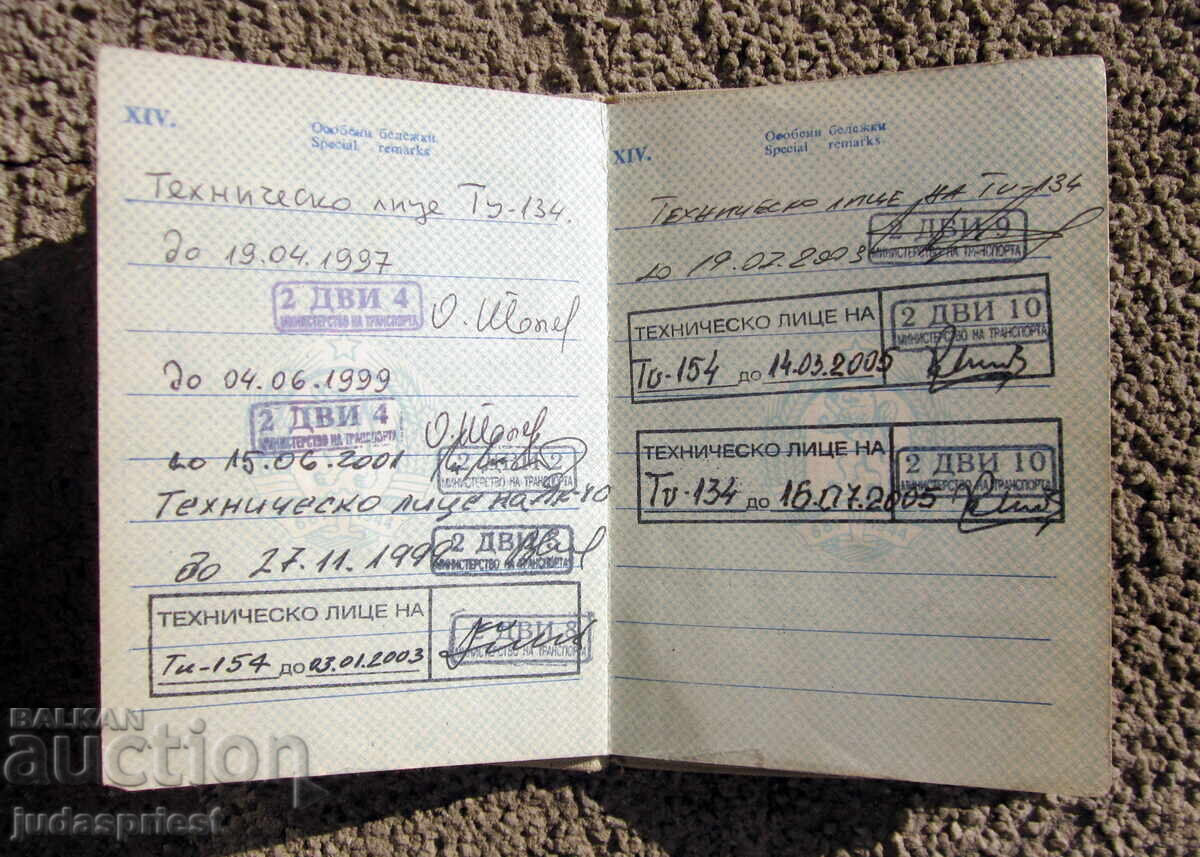 XIV.
Особени бележки
Special remarks
Техническо лице Ту-134.
до 19.04.1997
2 ДВИ 4
МИНИСТЕРСТВО НА ТРАНСПОРТА
до 04.06.1999
2 ДВИ 4
МИНИСТЕРСТВО НА ТРАНСПОРТА
до 15.06.2001
МИНИСТЕРСТВО НА ТРАНСПОРТА
Техническо лице на
до 27.11.1999
2 ДВИ
МИНИСТЕРСТВО НА ТРАНСПОРТА
ТЕХНИЧЕСКО ЛИЦЕ НА
Ту-154 до 03.01.2003
2 ДВИ 8
МИНИСТЕРСТВО НА ТРАНСПОРТА
XIV.
Особени бележки
Special remarks
Техническо лице на Ту-134
до 19.02.2003
2 ДВИ 9
МИНИСТЕРСТВО НА ТРАНСПОРТА
ТЕХНИЧЕСКО ЛИЦЕ НА
Ту-154 до 14.03.2005
2 ДВИ 10
МИНИСТЕРСТВО НА ТРАНСПОРТА
ТЕХНИЧЕСКО ЛИЦЕ НА
Ту-134 до 16.07.2005
2 ДВИ 10
МИНИСТЕРСТВО НА ТРАНСПОРТА
BALKAN
auction
judaspriest